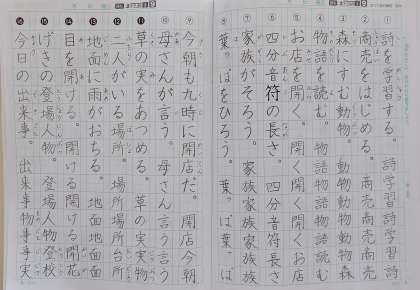 ①詩を学習する。詩学習詩学習詩
②商売をはじめる。商売商売商売
③森にすむ動物。動物動物動物森
④物語を読む。物語物語物語読む
⑤お店を開く。開く開く開くお店
⑥四分音符の長さ。四分音符長さ
⑦家族がそろう。家族家族家族家族
⑧葉っぱをひろう。葉っぱ葉っぱ葉
⑨今朝も九時に開店だ。開店今朝
⑩母さんが言う。母さん言う言う
⑪草の実をあつめる。草の実実物
⑫二人がいる場所。場所場所台所
⑬地面に雨がおちる。地面地面地面
⑭目を開ける。開ける開ける開花
⑮げきの登場人物。登場人物登校
⑯今日の出来事。出来事物事事実